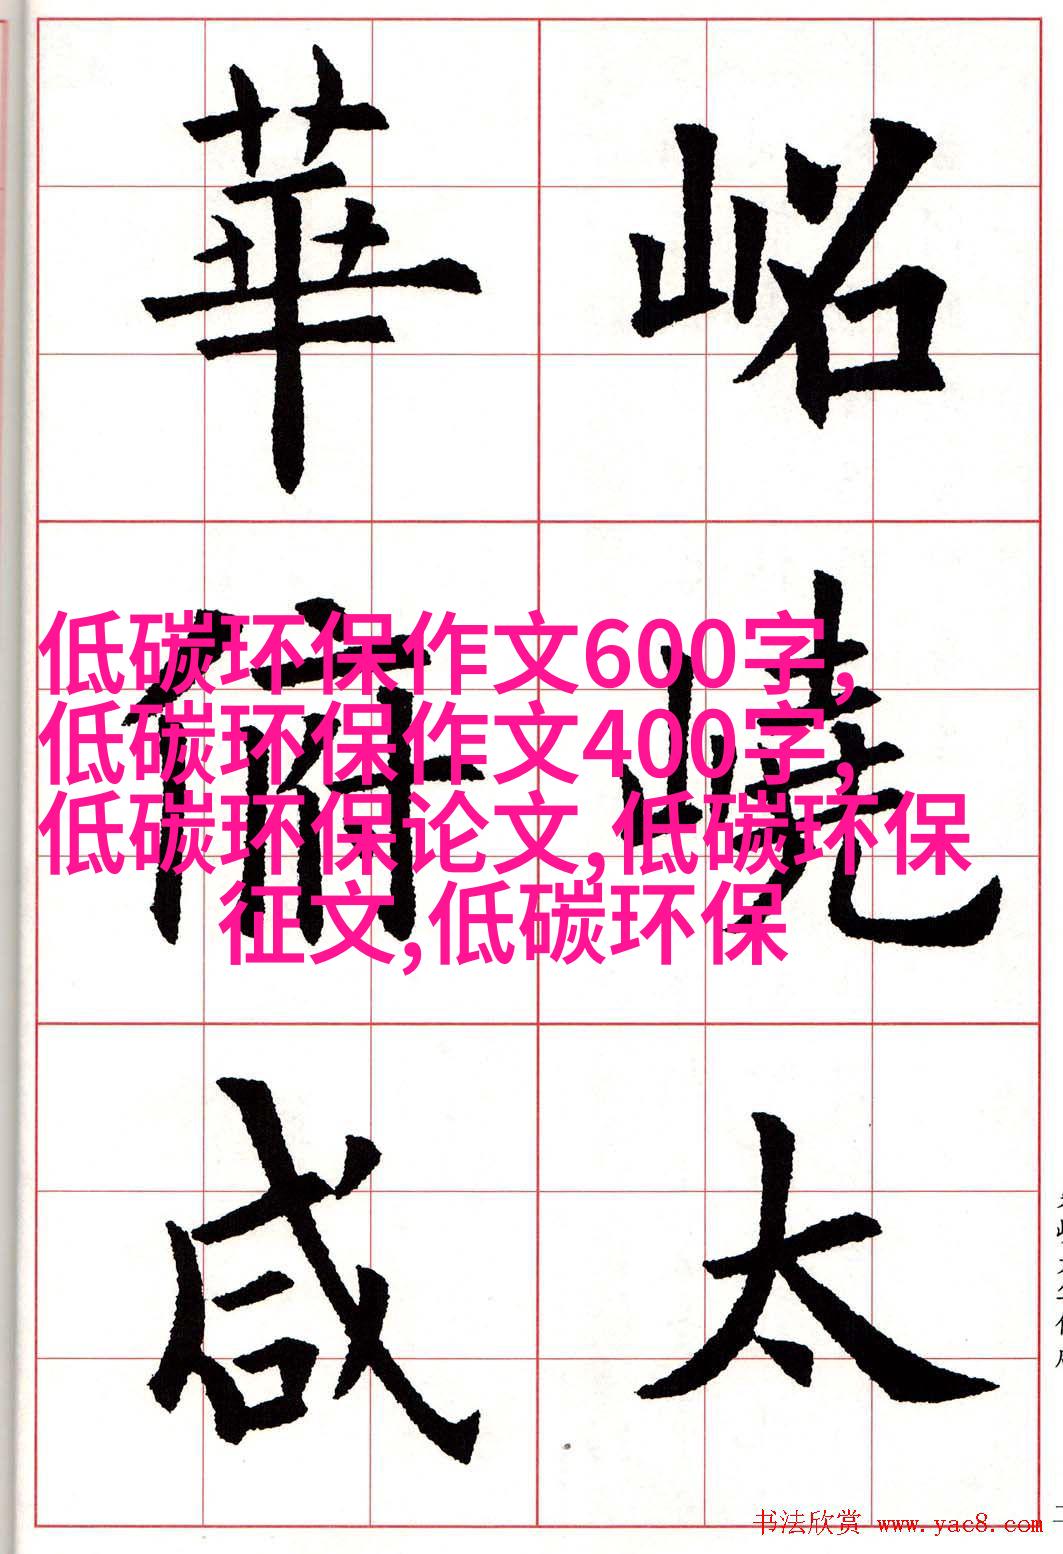 岹嶢太
華俯咸
低碳环保作文600字,
低碳环保作文400字,
低碳环保论文,低碳环保
征文,低碳环保
书法欣赏 www.yac8.com